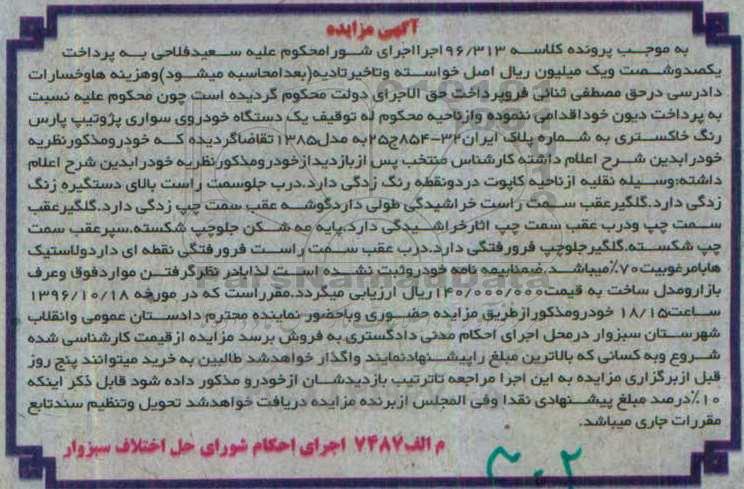 آگهی مزایده
به موجب پرونده کلاسه ۹۶/۳۱۳اجرااجرای شورامحکوم علیه سعیدفلاحی به پرداخت
یکصدوشصت ویک میلیون ریال اصل خواسته وتاخیرتادیه(بعدامحاسبه میشود)وهزینه هاوخسارات
دادرسی درحق مصطفی ثنائی فروپرداخت حق الاجرای دولت محکوم گردیده است چون محکوم علیه نسبت
به پرداخت دیون خوداقدامی ننموده وازناحیه محکوم له توقیف یک دستگاه خودروی سواری پژوتیپ پارس
رنگ خاکستری به شماره پلاک ایران۳۲-۸۵۴ج۲۵به مدل۱۳۸۵تقاضاگردیده که خودرومذکورنظریه
خودرابدین شرح اعلام داشته کارشناس منتخب پس ازبازدیدازخودرومذکورنظریه خودرابدین شرح اعلام
داشته:وسیله نقلیه ازناحیه کاپوت دردونقطه رنگ زدگی دارد.درب جلوسمت راست بالای دستگیره زنگ
زدگی دارد.گلگیرعقب سمت راست خراشیدگی طولی داردگوشه عقب سمت چپ زدگی دارد.گلگیرعقب
سمت چپ ودرب عقب سمت چپ اثارخراشیدگی دارد.پایه مه شکن جلوچپ شکسته.سپرعقب سمت
چپ شکسته.گلگیرجلوچپ فرورفتگی دارد.درب عقب سمت راست فرورفتگی نقطه ای داردولاستیک
هابامرغوبیت۷۰٪میباشد.ضمنابیمه نامه خودروثبت نشده است لذابادر نظرگرفتن مواردفوق وعرف
بازارومدل ساخت به قیمت۱۴۰/۰۰۰/۰۰۰ریال ارزیابی میگردد.مقرراست که در مورخه ۱۳۹۶/۱۰/۱۸
ساعت۱۸/۱۵ خودرومذکورازطریق مزایده حضوری وباحضور نماینده محترم دادستان عمومی وانقلاب
شهرستان سبزوار درمحل اجرای احکام مدنی دادگستری به فروش برسد مزایده ازقیمت کارشناسی شده
شروع وبه کسانی که بالاترین مبلغ راپیشنهادنمایند واگذار خواهدشد طالبین به خرید میتوانند پنج روز
قبل ازبرگزاری مزایده به این اجرا مراجعه تاترتیب بازدیدشان ازخودرو مذکور داده شود قابل ذکر اینکه
۱۰٪درصد مبلغ پیشنهادی نقدا وفی المجلس ازبرنده مزایده دریافت خواهدشد تحویل وتنظیم سندتابع
مقررات جاری میباشد.
م الف۷۴۸۷ اجرای احکام شورای حل اختلاف سبزوار